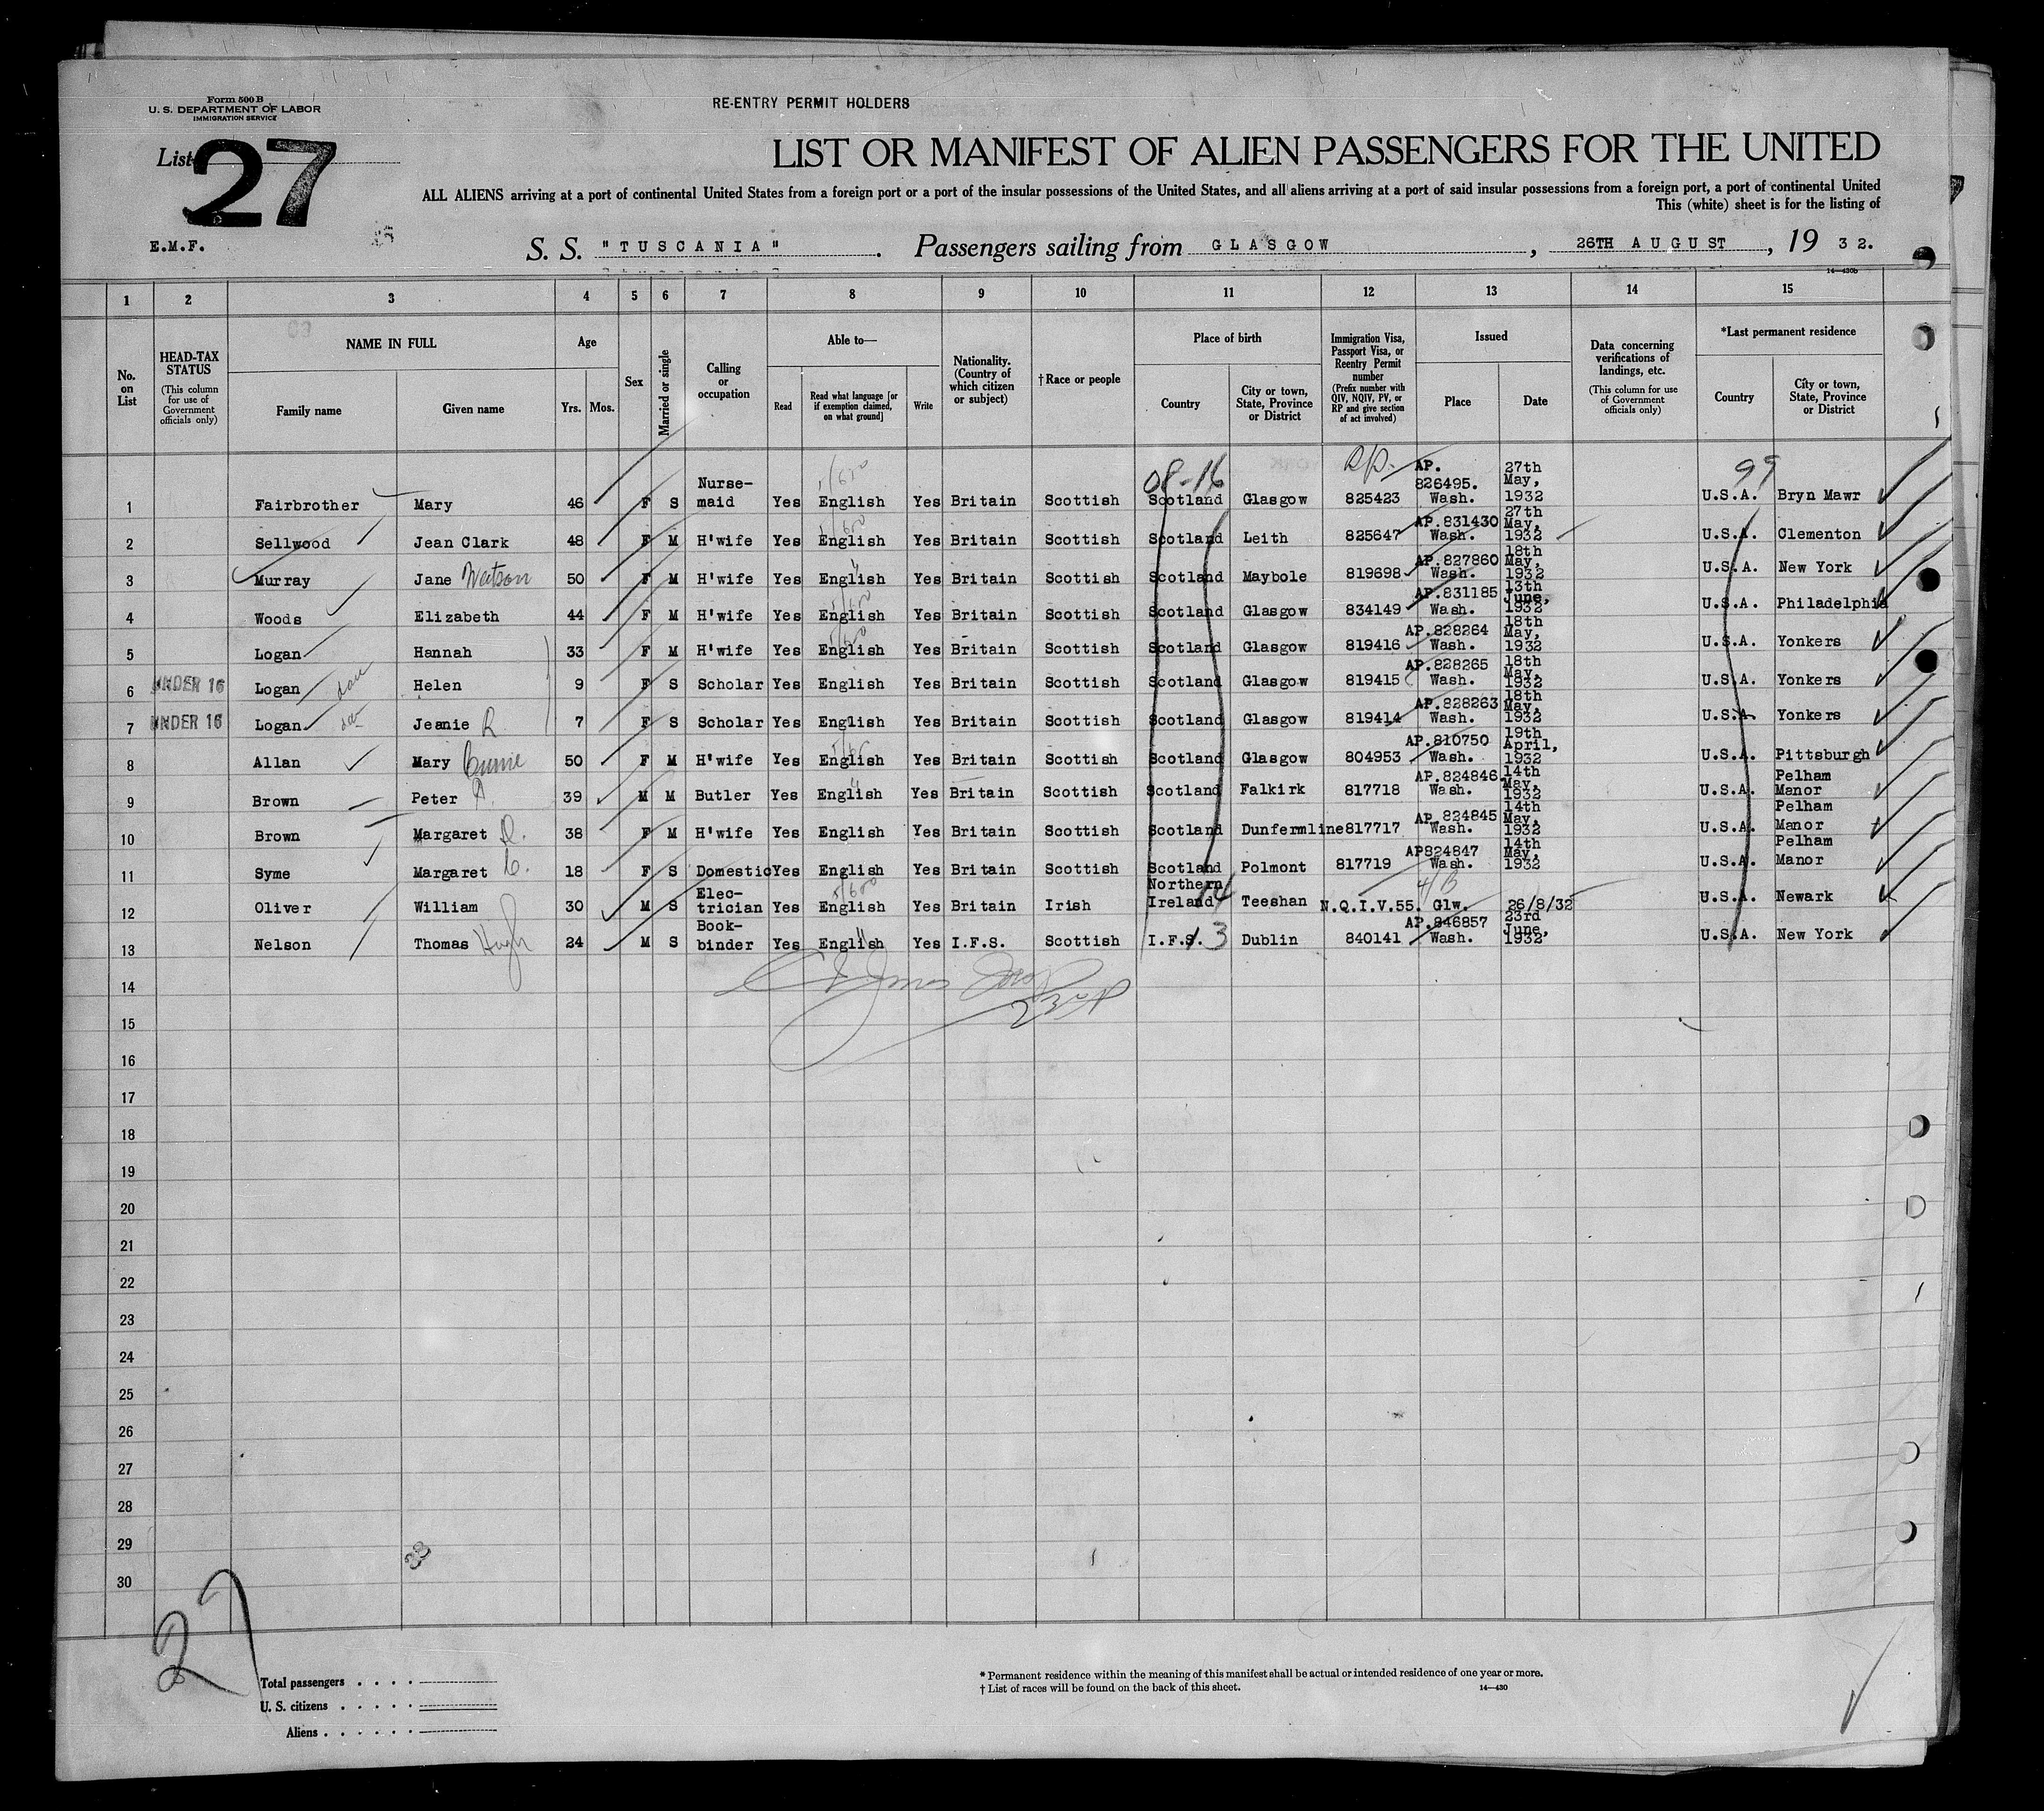 Form 500 B
U. S. DEPARTMENT OF LABOR
IMMIGRATION SERVICE
RE-ENTRY PERMIT HOLDERS
List 27
LIST OR MANIFEST OF ALIEN PASSENGERS FOR THE UNITED
ALL ALIENS arriving at a port of continental United States from a foreign port or a port of the insular possessions of the United States, and all aliens arriving at a port of said insular possessions from a foreign port, a port of continental United
This (white) sheet is for the listing of
E.M.F.
S. S. "TUSCANIA". Passengers sailing from GLASGOW, 26TH AUGUST, 19 32.
14—430b
1 2 3 4 5 6 7 8 9 10 11 12 13 14 15
No. on List
HEAD-TAX STATUS (This column for use of Government officials only)
NAME IN FULL Family name Given name
Age Yrs. Mos.
Sex
Married or single
Calling or occupation
Able to— Read Read what language [or if exemption claimed, on what ground] Write
Nationality. (Country of which citizen or subject)
†Race or people
Place of birth Country City or town, State, Province or District
Immigration Visa, Passport Visa, or Reentry Permit number (Prefix number with QIV, NQIV, PV, or RP and give section of act involved)
Issued Place Date
Data concerning verifications of landings, etc. (This column for use of Government officials only)
*Last permanent residence Country City or town, State, Province or District
08-16 99
1 Fairbrother Mary 46 F S Nurse-maid Yes English Yes Britain Scottish Scotland Glasgow 825423 AP. 826495. Wash. 27th May, 1932 U.S.A. Bryn Mawr
2 Sellwood Jean Clark 48 F M H'wife Yes English Yes Britain Scottish Scotland Leith 825647 AP.831430 Wash. 27th May, 1932 U.S.A. Clementon
3 Murray Jane Watson 50 F M H'wife Yes English Yes Britain Scottish Scotland Maybole 819698 AP.827860 Wash. 18th May, 1932 U.S.A. New York
4 Woods Elizabeth 44 F M H'wife Yes English Yes Britain Scottish Scotland Glasgow 834149 AP.831185 Wash. 13th June, 1932 U.S.A. Philadelphia
5 Logan Hannah 33 F M H'wife Yes English Yes Britain Scottish Scotland Glasgow 819416 AP.828264 Wash. 18th May, 1932 U.S.A. Yonkers
6 UNDER 16 Logan Helen 9 F S Scholar Yes English Yes Britain Scottish Scotland Glasgow 819415 AP.828265 Wash. 18th May, 1932 U.S.A. Yonkers
7 UNDER 16 Logan Jeanie R 7 F S Scholar Yes English Yes Britain Scottish Scotland Glasgow 819414 AP.828263 Wash. 18th May, 1932 U.S.A. Yonkers
8 Allan Mary Currie 50 F M H'wife Yes English Yes Britain Scottish Scotland Glasgow 804953 AP.810750 Wash. 19th April, 1932 U.S.A. Pittsburgh
9 Brown Peter A. 39 M M Butler Yes English Yes Britain Scottish Scotland Falkirk 817718 AP.824846 Wash. 14th May, 1932 U.S.A. Pelham Manor
10 Brown Margaret D. 38 F M H'wife Yes English Yes Britain Scottish Scotland Dunfermline 817717 AP.824845 Wash. 14th May, 1932 U.S.A. Pelham Manor
11 Syme Margaret C. 18 F S Domestic Yes English Yes Britain Scottish Scotland Polmont 817719 AP824847 Wash. 14th May, 1932 U.S.A. Pelham Manor
12 Oliver William 30 M S Elec-trician Yes English Yes Britain Irish Northern Ireland Teeshan N.Q.I.V.55. 4/B Glw. 26/8/32 U.S.A. Newark
13 Nelson Thomas Hugh 24 M S Book-binder Yes English Yes I.F.S. Scottish I.F.S. 13 Dublin 840141 AP.846857 Wash. 23rd June, 1932 U.S.A. New York
14
15
16
17
18
19
20
21
22
23
24
25
26
27
28
29
30
27
Total passengers
U. S. citizens
Aliens
* Permanent residence within the meaning of this manifest shall be actual or intended residence of one year or more.
† List of races will be found on the back of this sheet.
14—430